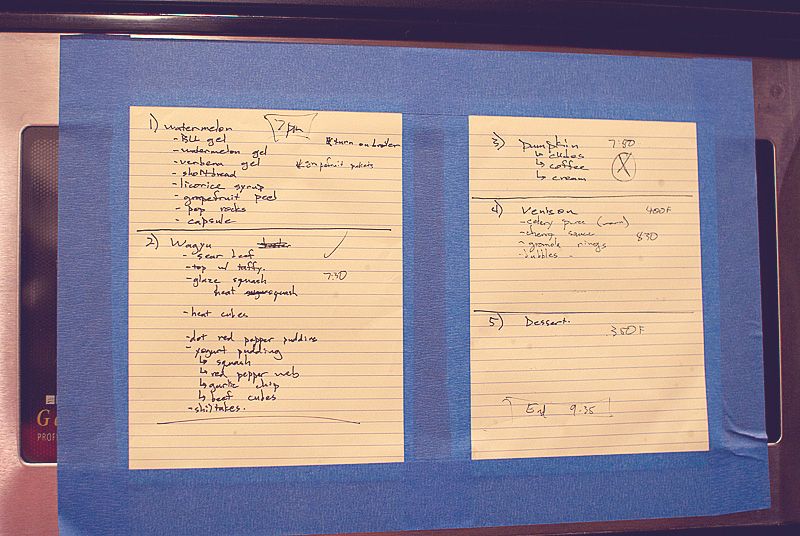 1) watermelon
7pm
- BLL gel
turn on broiler
- watermelon gel
- verbena gel
grapefruit packets
- shortbread
- licorice syrup
- grapefruit peel
- pop rocks
- capsule
2) Wagyu
- sear beef
- top w/ taffy.
7:30
- glaze squash
heat squash
- heat cubes
- dot red pepper pudding
- yogurt pudding
↳ squash
↳ red pepper web
↳ garlic chip
↳ beef cubes
- shiitakes.
3) Pumpkin 7:50
↳ cubes
↳ coffee
↳ cream
4) Venison 400F
- celery puree (warm)
- cherry sauce 830
- granola rings
- bubbles -
5) Dessert.
350F
End 9:35